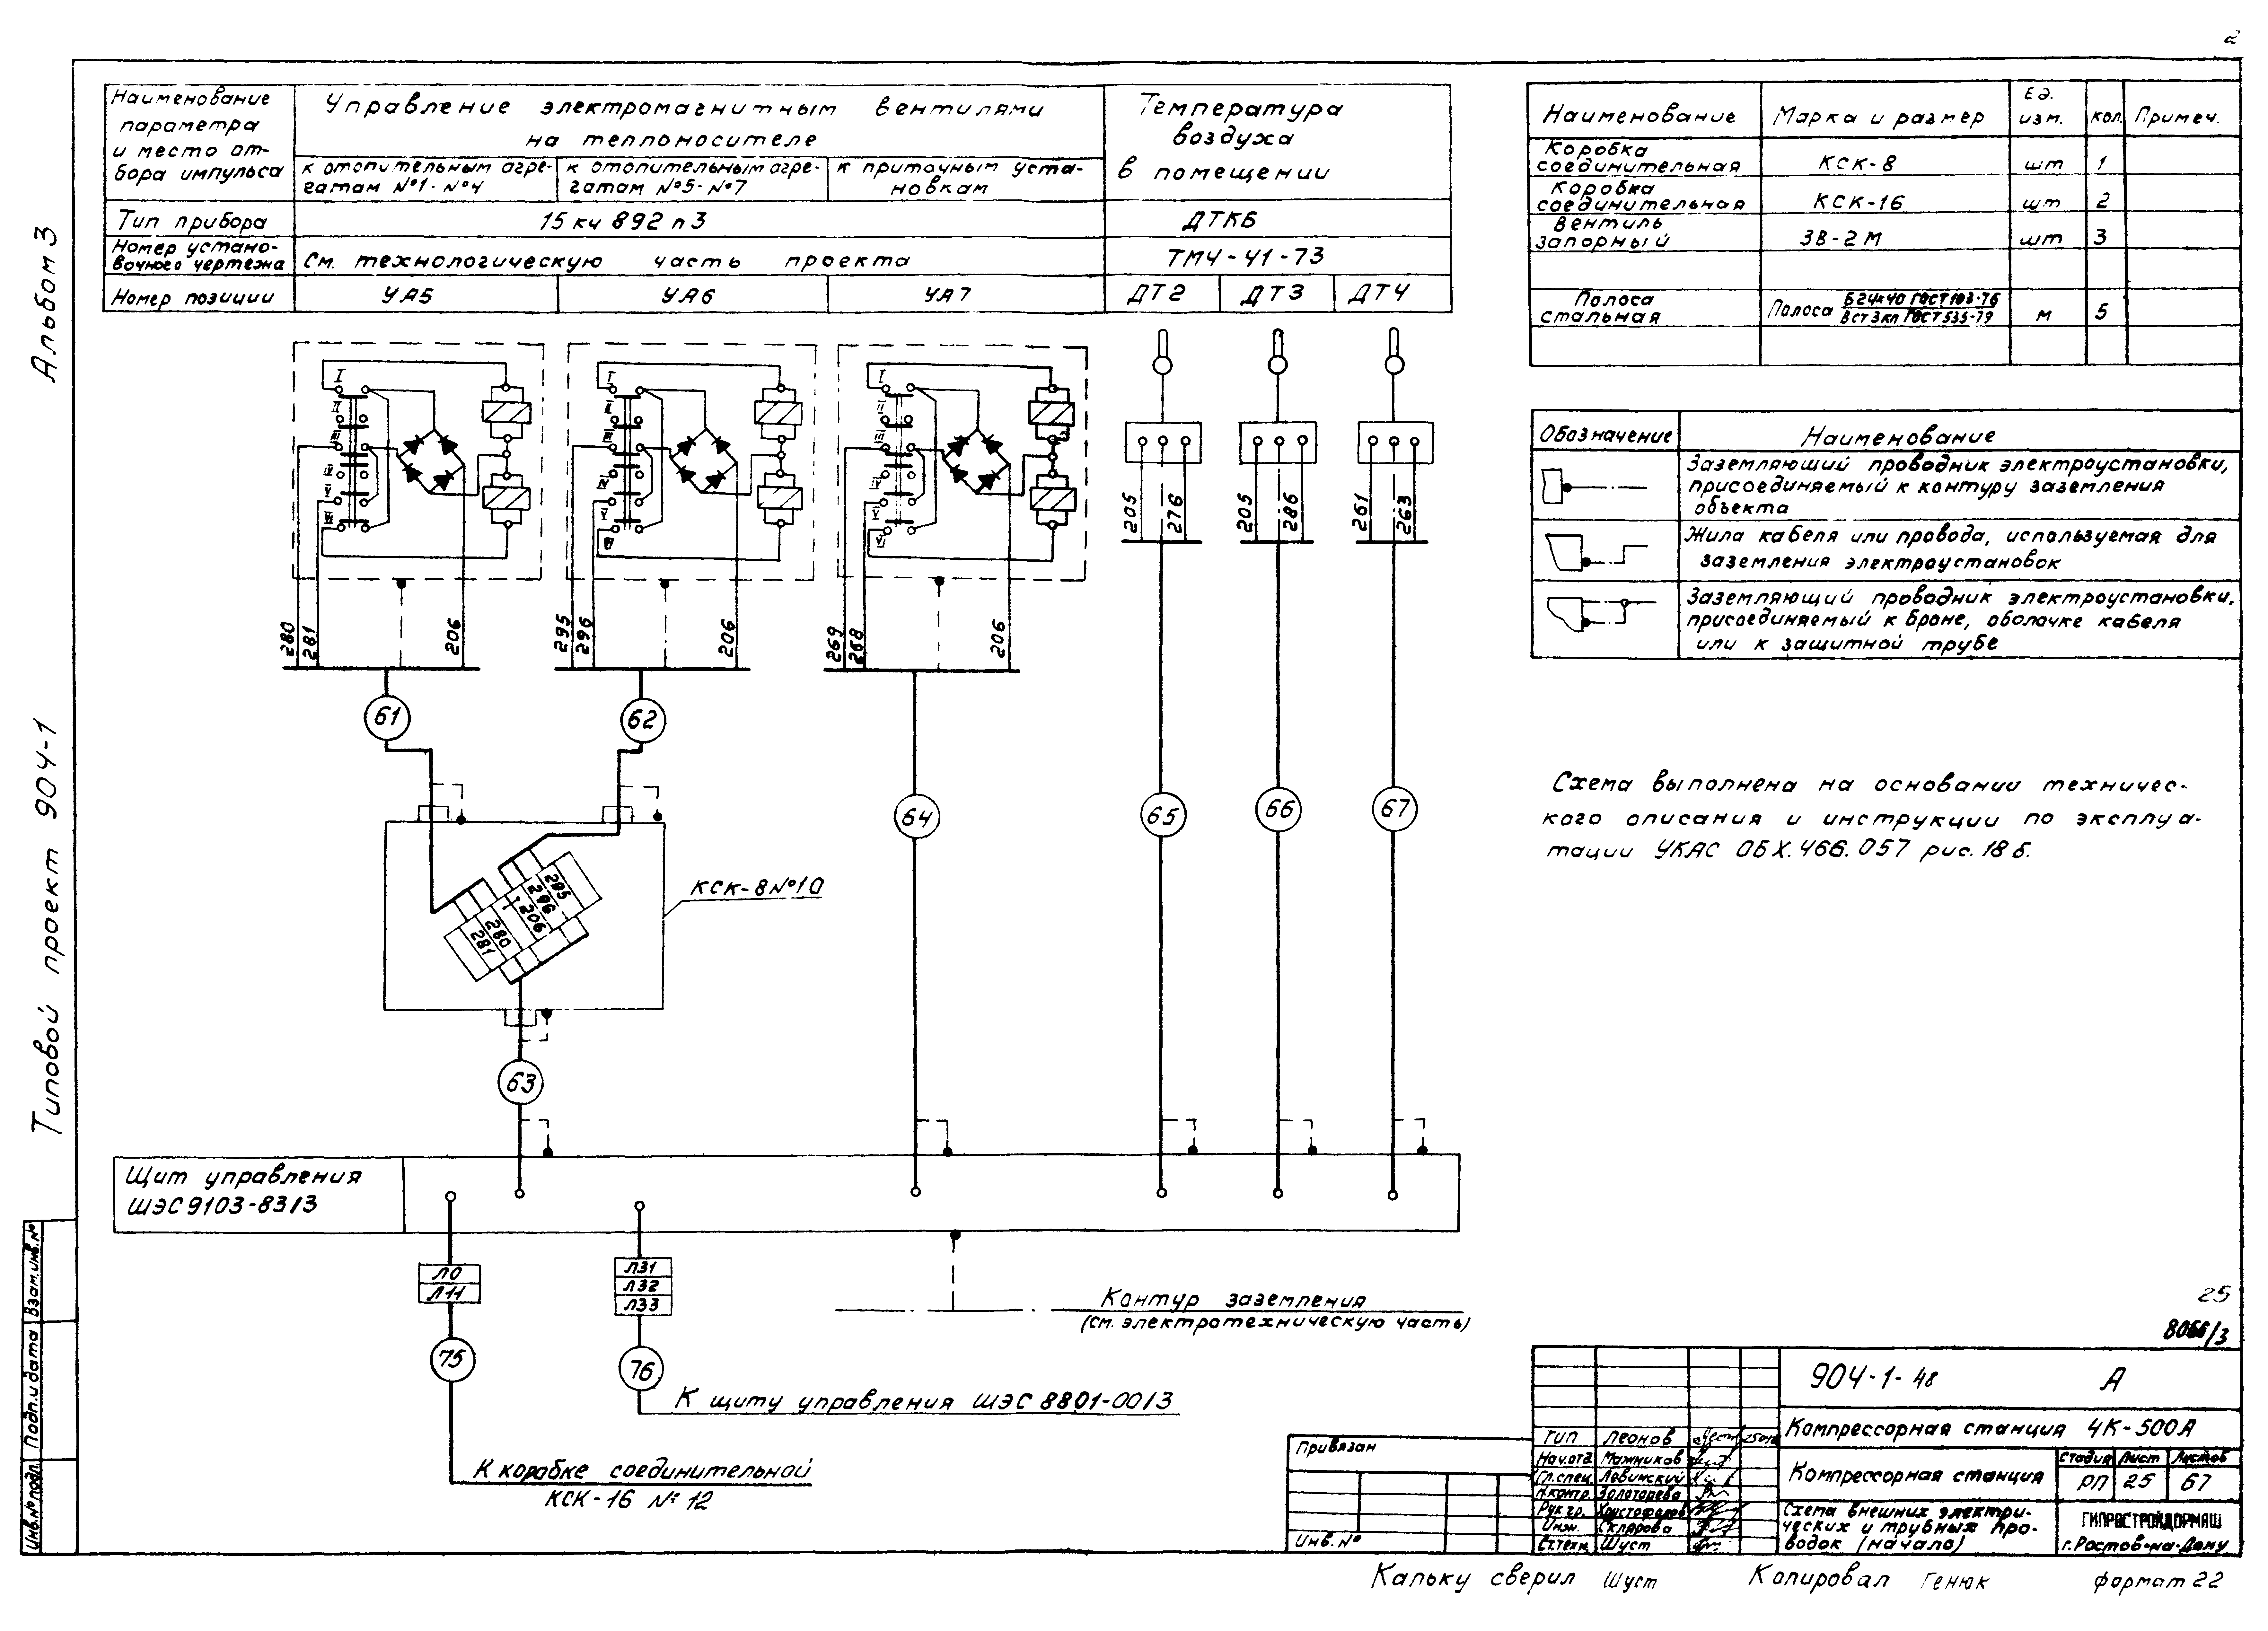 2
Альбом 3
Типовой проект 904-1
Наименование
параметра
и место от-
бора импульса
Управление электромагнитным вентилями
на теплоносителе
к отопительным агре-
гатам №1-№4
к отопительным агре-
гатам №5-№7
к приточным уста-
новкам
Температура
воздуха
в помещении
Тип прибора
15 кч 892 п 3
ДТКБ
Номер устано-
вочного чертежа
См. технологическую часть проекта
ТМЧ-41-73
Номер позиции
УА5
УА6
УА7
ДТ2
ДТ3
ДТ4
Наименование
Марка и размер
Ед.
изм.
кол.
Примеч.
Коробка
соединительная
КСК-8
шт
1
Коробка
соединительная
КСК-16
шт
2
Вентиль
запорный
ЗВ-2М
шт
3
Полоса
стальная
Полоса Б24х40 ГОСТ103-76
ВСт3кп ГОСТ535-79
м
5
Обозначение
Наименование
Заземляющий проводник электроустановки,
присоединяемый к контуру заземления
объекта
Жила кабеля или провода, используемая для
заземления электроустановок
Заземляющий проводник электроустановки,
присоединяемый к броне, оболочке кабеля
или к защитной трубе
I
II
III
IV
V
VI
I
II
III
IV
V
VI
I
II
III
IV
V
VI
280
281
206
295
296
206
269
268
206
205
276
205
286
261
263
61
62
64
65
66
67
Схема выполнена на основании техничес-
кого описания и инструкции по эксплуа-
тации УКАС ОБХ.466.057 рис. 18б.
КСК-8№10
295
296
206
280
281
63
Щит управления
ШЭС9103-83/3
Л0
Л11
Л31
Л32
Л33
75
76
Контур заземления
(см. электротехническую часть)
К щиту управления ШЭС 8801-00/3
К коробке соединительной
КСК-16 № 12
25
8066/3
904-1-48 А
Компрессорная станция 4К-500А
Компрессорная станция
Стадия
Лист
Листов
РП
25
67
Схема внешних электри-
ческих и трубных про-
водок (начало)
ГИПРОСТРОЙДОРМАШ
г.Ростов-на-Дону
Тип Леонов
Нач.отд. Мажников
Гл.спец. Левинский
Н.контр. Золотарева
Рук.гр. Христофоров
Инж. Склярова
Ст.техн. Шуст
Привязан
Инв.№
Инв.№подл. Подп.и дата Взам.инв.№
Кальку сверил Шуст
Копировал Генюк
формат 22